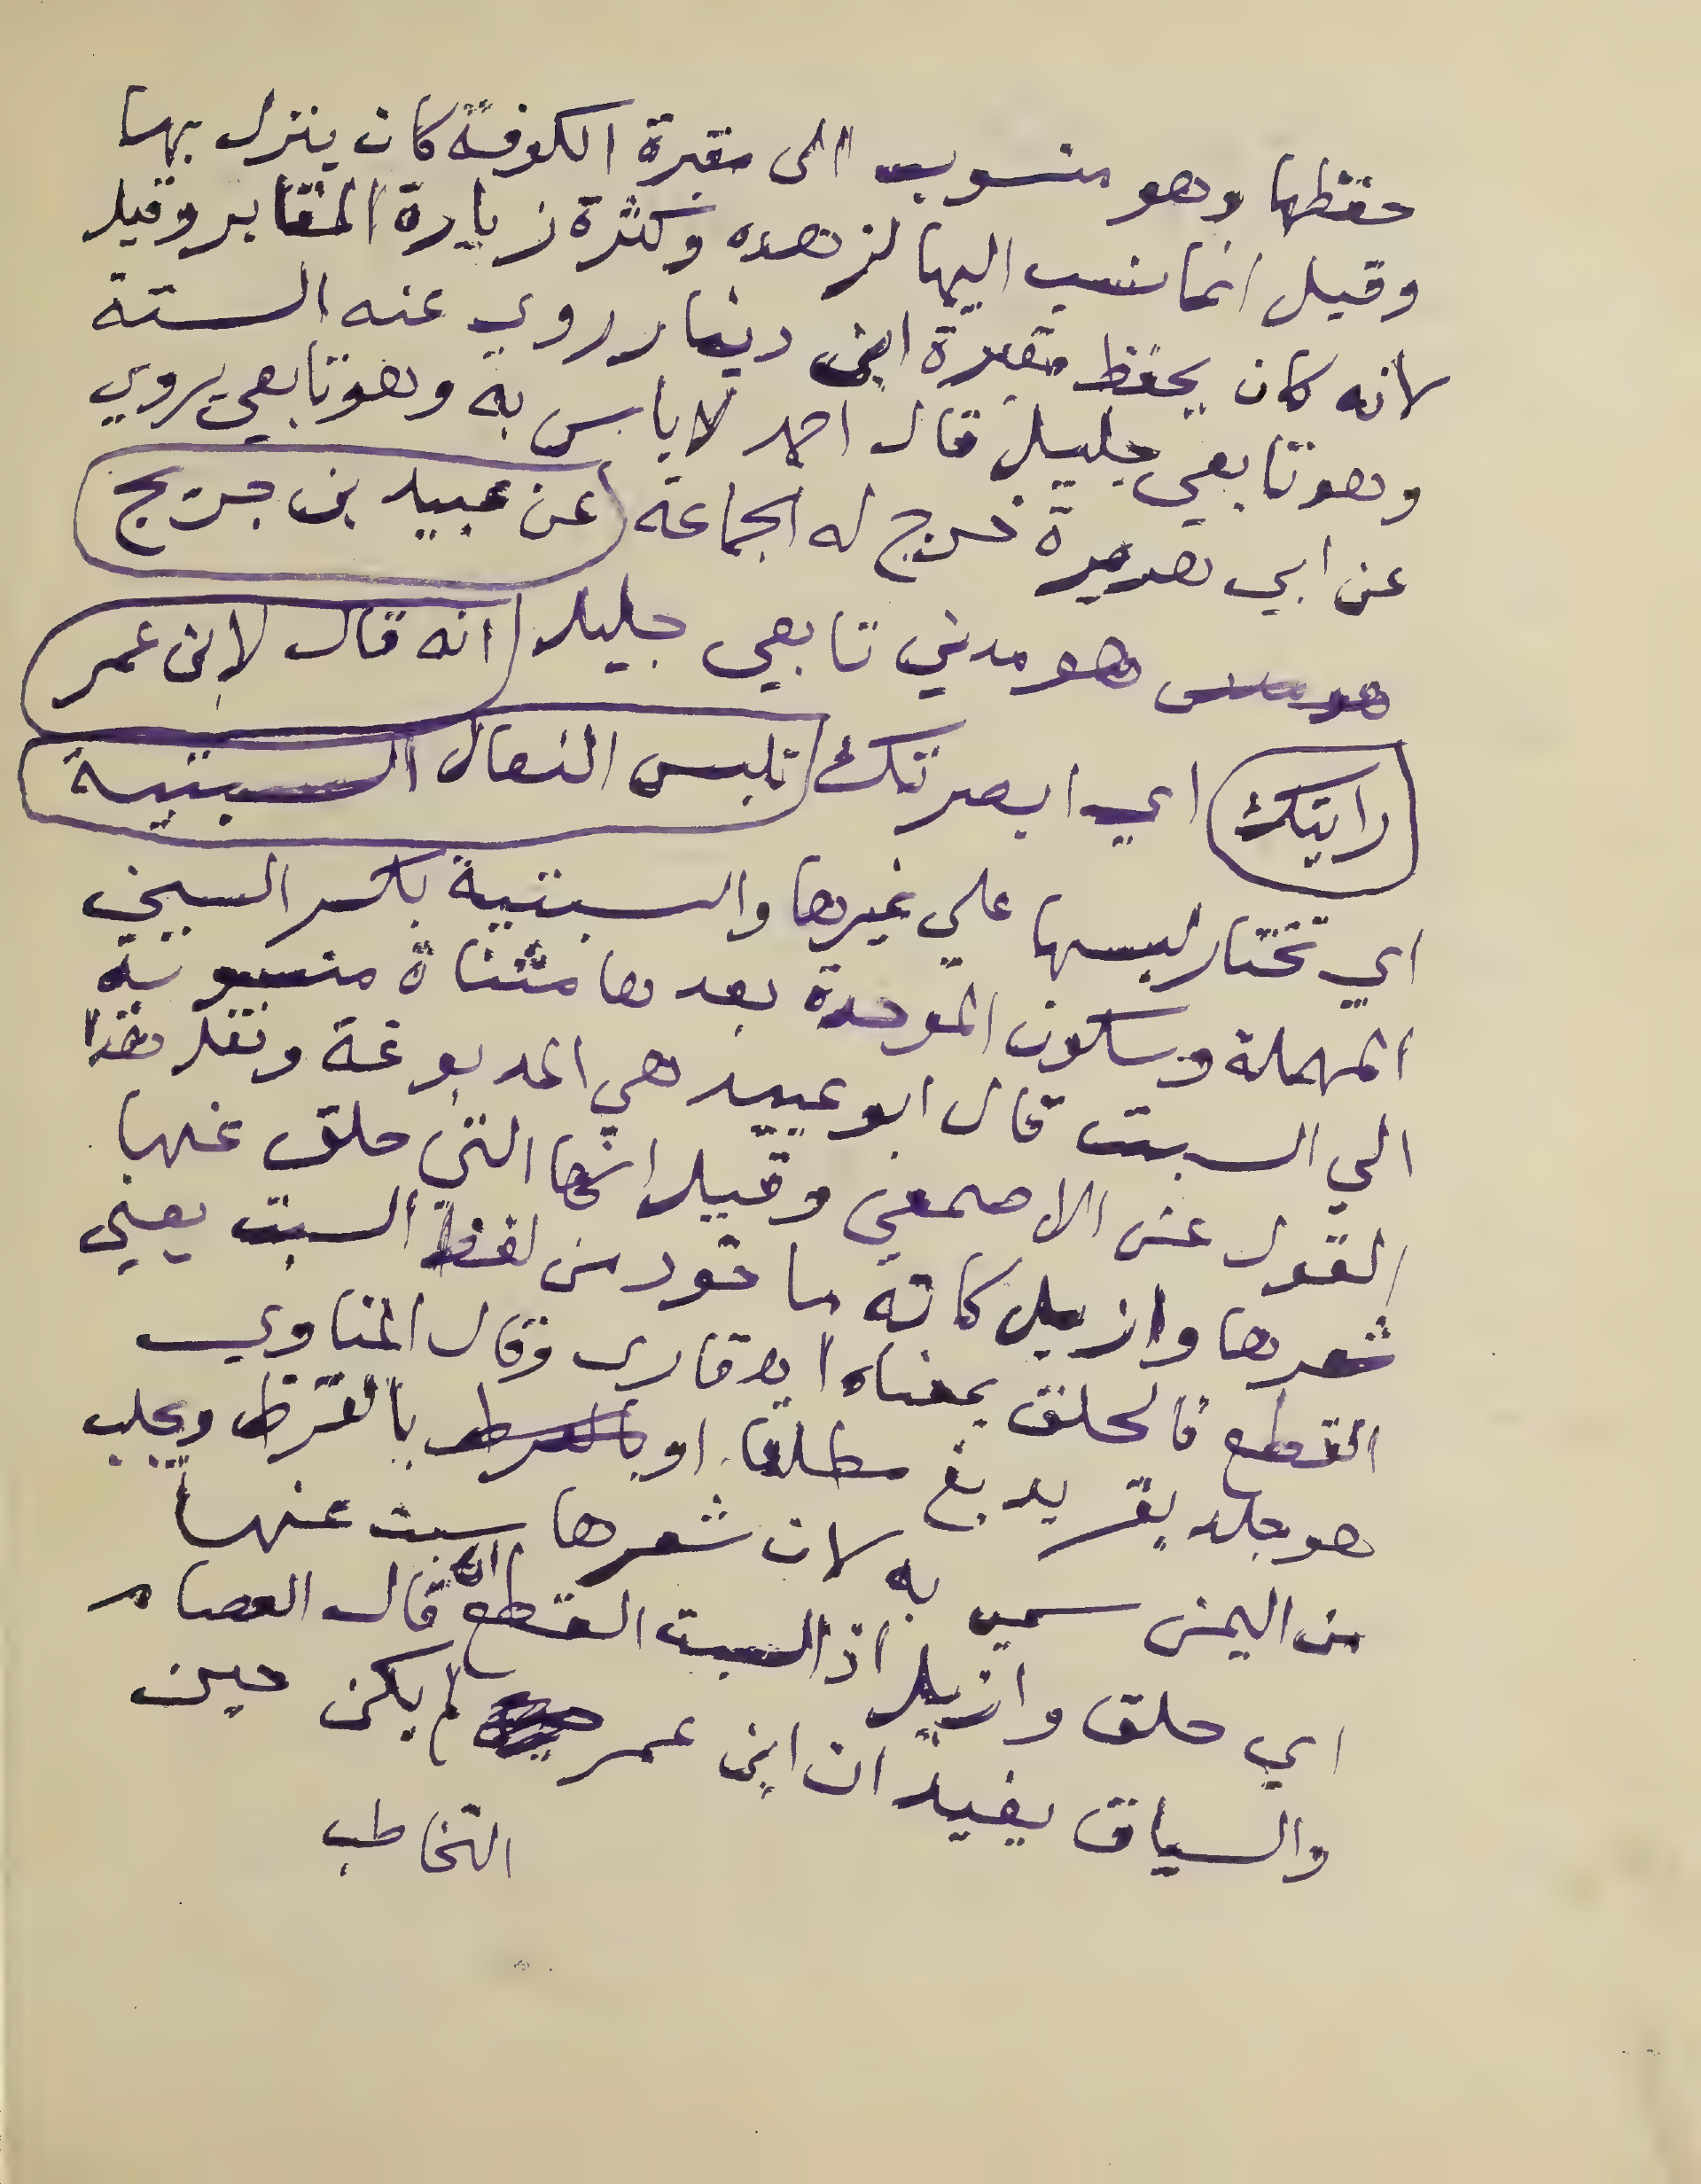 حفظها وهو منسوب الى مقبرة الكوفة كان ينزل بها
وقيل انما نسب اليها لزهده وكثرة زيارة المقابر وقيل
لانه كان يحفظ مقبرة ابن دينار روي عنه الستة
وهو تابعي جليل قال احمد لا باس به وهو تابعي يروي
عن ابي هريرة خرج له الجماعة عن عبيد بن جريج
هو مدني تابعي جليل انه قال لابن عمر
رايتك اي ابصرتك تلبس النعال السبتية
اي تختار لبسها علي غيرها والسبتية بكسر السين
المهملة وسكون الموحدة بعدها مثناة منسوبة
الي السبت قال ابو عبيد هي المدبوغة ونقل هذا
القول عن الاصمعي وقيل انها التي حلق عنها
شعرها وازيل كانه ماخوذ من لفظ السبت يعني
القطع فالحلق بمعناه اه قاري وقال المناوي
هو جلد بقر يدبغ مطلقا او بالقرظ ويجلب
من اليمن سمي به لان شعرها سبت عنها
اي حلق وازيل اذ السبت القطع اه قال العصام
والسياق يفيد ان ابن عمر لم يكن حين
التخاطب